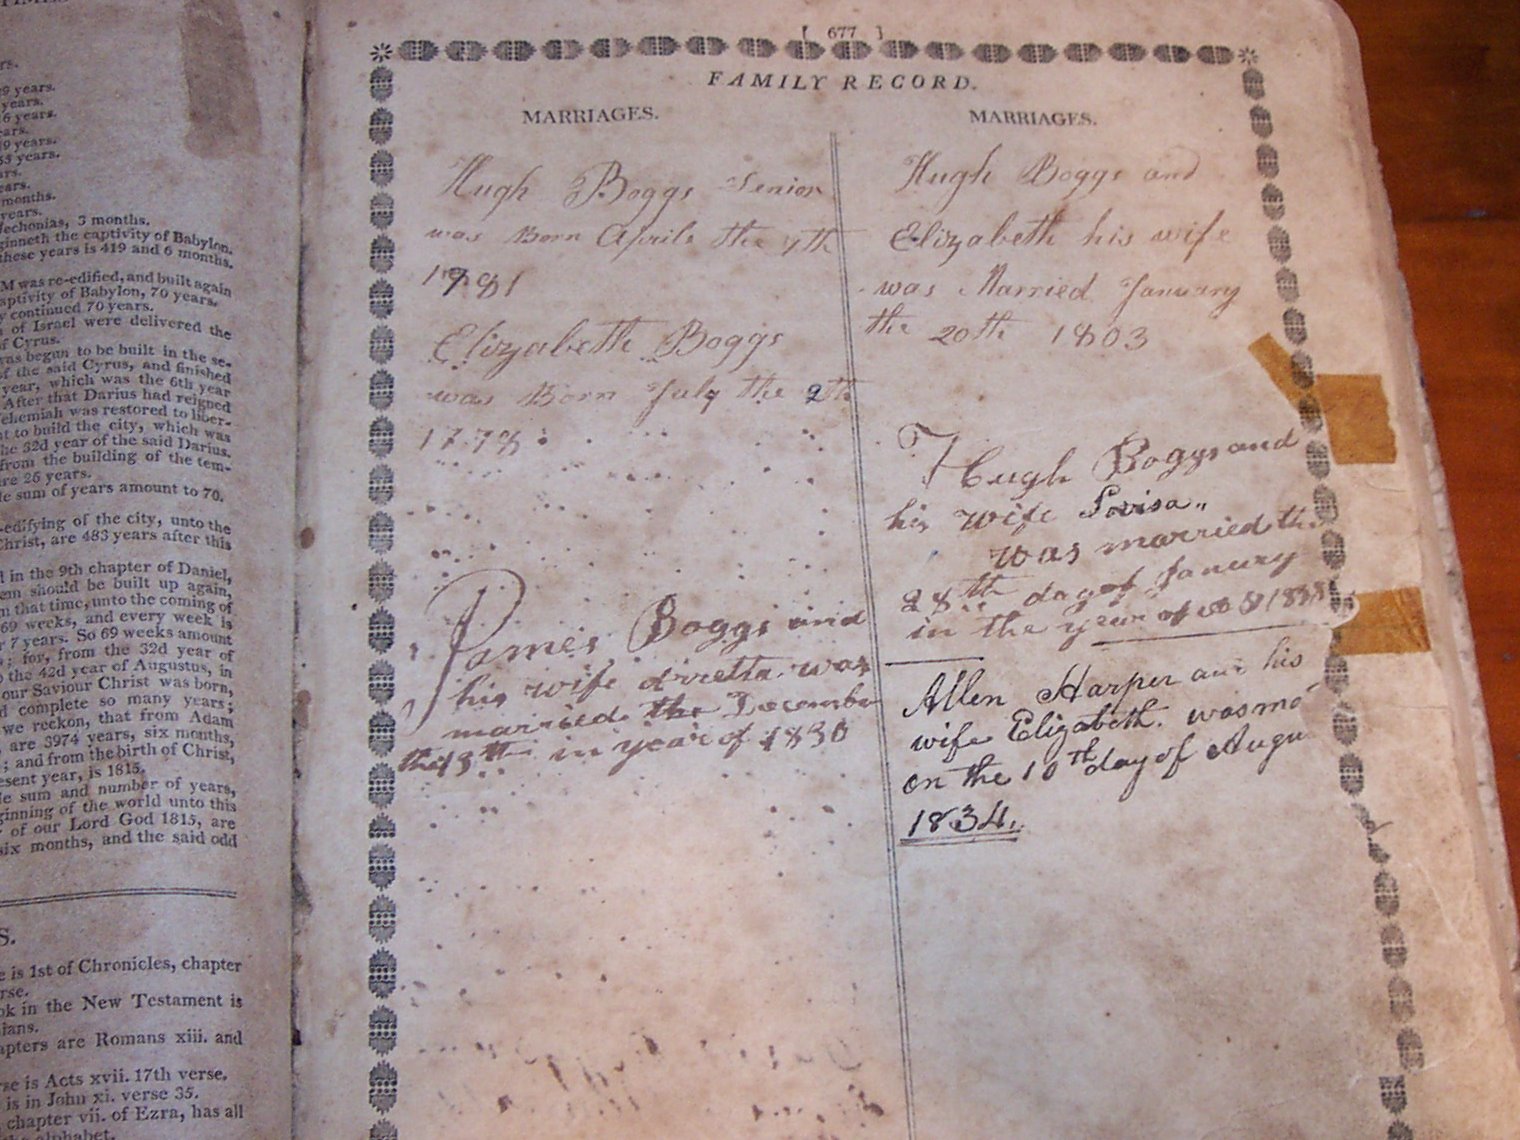 9 years.
years.
6 years.
9 years.
33 years.
months.
years.
Jechonias, 3 months.
ginneth the captivity of Babylon.
these years is 419 and 6 months.
M was re-edified, and built again
aptivity of Babylon, 70 years.
y continued 70 years.
of Israel were delivered the
of Cyrus.
was begun to be built in the se-
of the said Cyrus, and finished
year, which was the 6th year
After that Darius had reigned
Nehemiah was restored to liber-
nt to build the city, which was
the 32d year of the said Darius.
from the building of the tem-
are 26 years.
le sum of years amount to 70.
-edifying of the city, unto the
Christ, are 483 years after this
d in the 9th chapter of Daniel,
em should be built up again,
m that time, unto the coming of
69 weeks, and every week is
r 7 years. So 69 weeks amount
; for, from the 32d year of
o the 42d year of Augustus, in
our Saviour Christ was born,
d complete so many years;
we reckon, that from Adam
, are 3974 years, six months,
; and from the birth of Christ,
esent year, is 1815.
le sum and number of years,
ginning of the world unto this
of our Lord God 1815, are
six months, and the said odd
S.
e is 1st of Chronicles, chapter
rse.
ok in the New Testament is
ians.
apters are Romans xiii. and
rse is Acts xvii. 17th verse.
is in John xi. verse 35.
chapter vii. of Ezra, has all
alphabet.
[ 677 ]
FAMILY RECORD.
MARRIAGES.
Hugh Boggs Senior
was Born Aprile the 7th
1781
Elizabeth Boggs
was Born July the 9th
1778
James Boggs and
his wife was
married the December
the 13th in year of 1830
MARRIAGES.
Hugh Boggs and
Elizabeth his wife
was Married January
the 20th 1803
Hugh Boggs and
his wife Lovisa
was married the
28th day of Janury
in the year of
Allen Harper and his
wife Elizabeth. was ma
on the 10th day of Augu
1834.